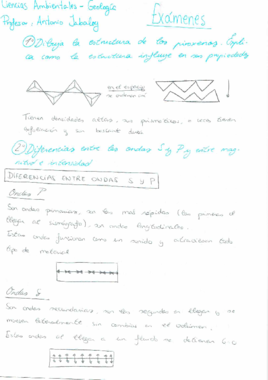 Ciencias Ambientales - Geología
Profesor: Antonio Jabaloy
Exámenes
1º Dibuja la estructura de los piroxenos. Explica como la estructura influye en sus propiedades
en el espacio
Tienen densidades altas, son
refracción y un
2º Diferencias entre las ondas S y P y entre magnitud e intensidad
DIFERENCIAS ENTRE ONDAS S Y P
Ondas P
Son ondas primarias, son las más rápidas (las primeras en
llegar al sismógrafo), son ondas longitudinales.
Estas ondas funcionan como un sonido y atraviesan todo
tipo de material
Ondas S
Son ondas secundarias, son las segundas en llegar y se
mueven lateralmente sin cambios en el volumen.
Estas ondas al llegar a un fluido se detienen